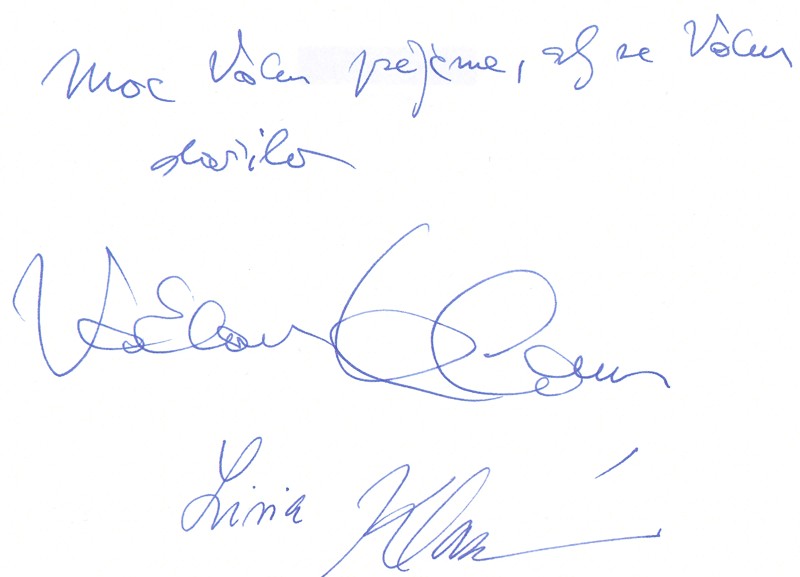 Moc Vám přejeme, ať se Vám
dařilo
Václav Klaus
Livia Klausová